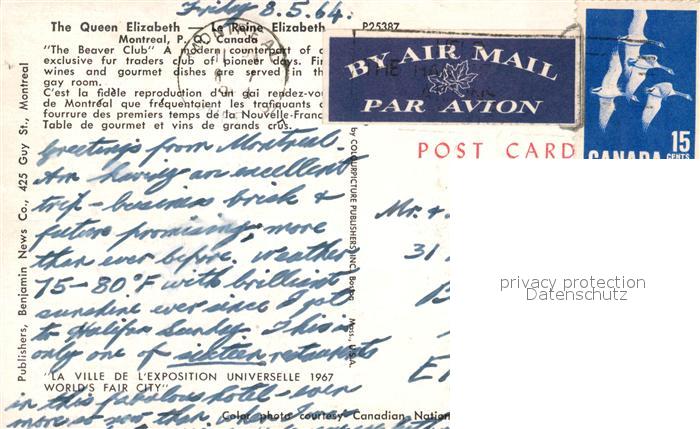 Friday 8.5.64.
The Queen Elizabeth — Le Reine Elizabeth P25387
Montreal, P. Q., Canada
"The Beaver Club" A modern counterpart of
exclusive fur traders club of pioneer days. Fin
wines and gourmet dishes are served in th
gay room.
C'est la fidèle reproduction d'un gai rendez-vou
de Montréal que fréquentaient les trafiquants
fourrure des premiers temps de la Nouvelle-Franc
Table de gourmet et vins de grands crus.
BY AIR MAIL
PAR AVION
15
CENTS
CANADA
POST CARD
Greetings from Montreal.
Am having an excellent
trip - business brisk &
future promising, more
than ever before. Weather
75-80°F with brilliant
sunshine ever since I got
to Halifax Sunday. This is
only one of sixteen restaurants
"LA VILLE DE L'EXPOSITION UNIVERSELLE 1967
WORLD'S FAIR CITY"
in this fabulous hotel - even
more so now than
Color photo courtesy Canadian Nation
Publishers, Benjamin News Co., 425 Guy St., Montreal
by COLOURPICTURE PUBLISHERS INC. Boston Mass., U.S.A.
Mr. &
31
privacy protection
Datenschutz